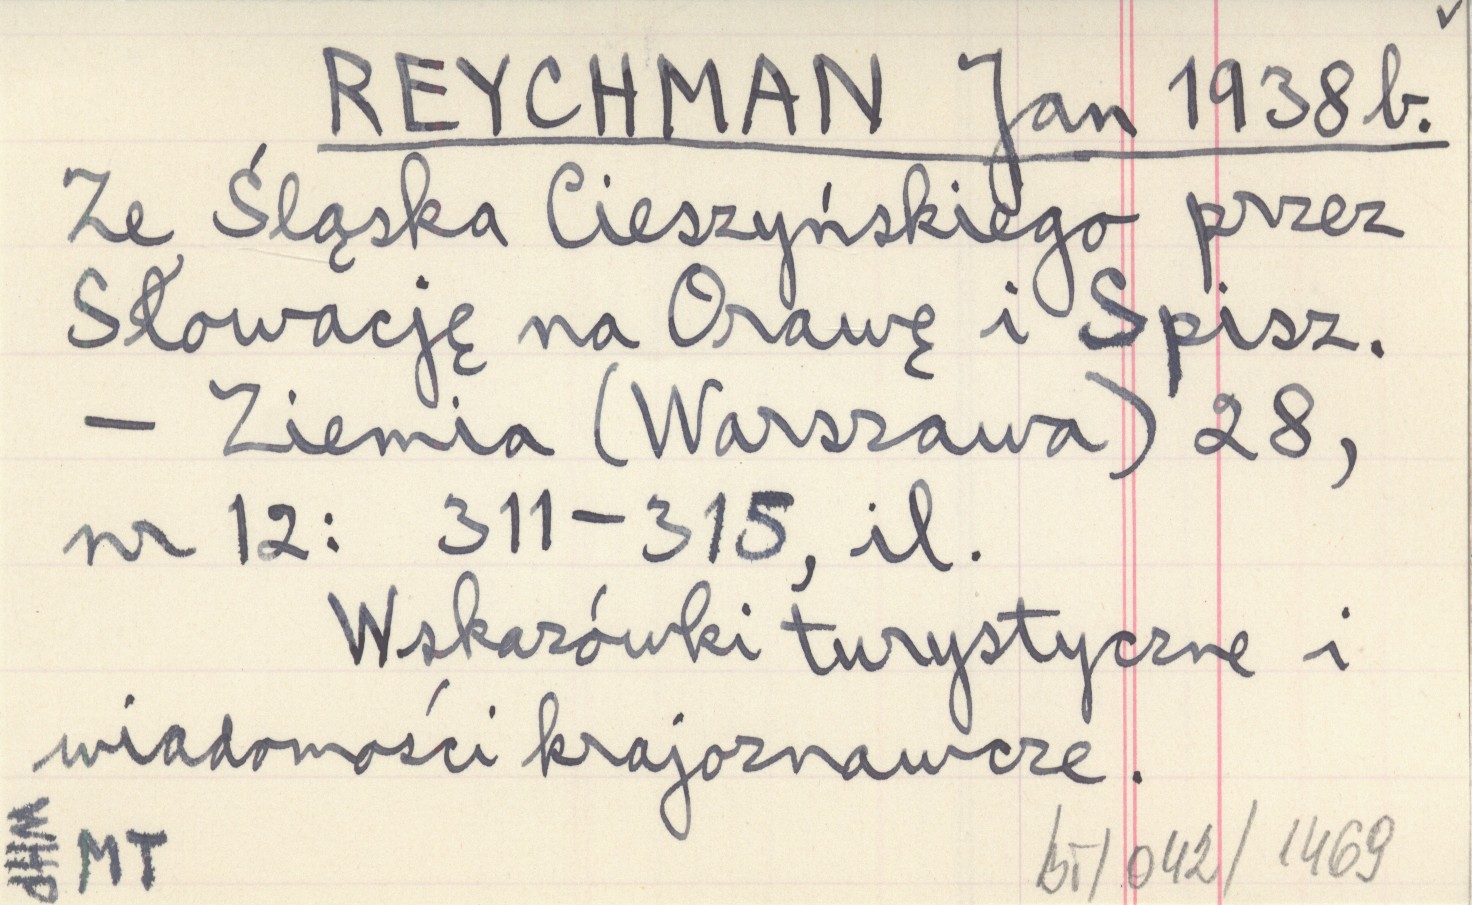 REYCHMAN Jan 1938b.
Ze Śląska Cieszyńskiego przez
Słowację na Orawę i Spisz.
– Ziemia (Warszawa) 28,
nr 12: 311–315, il.
Wskazówki turystyczne i
wiadomości krajoznawcze.
MT
042/1469